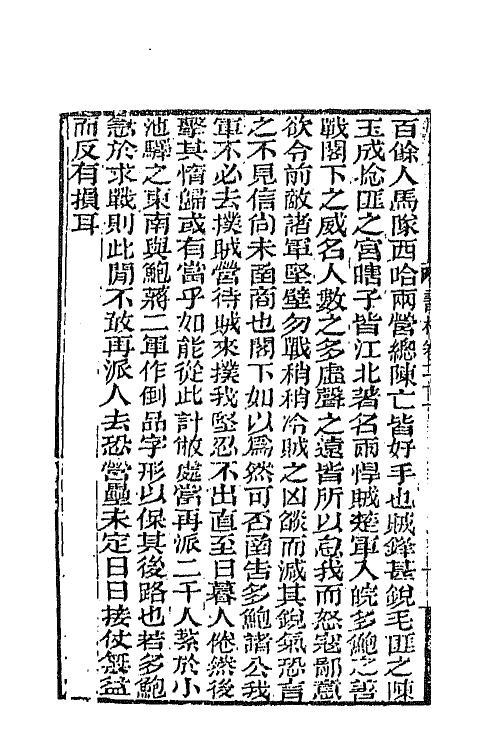 百餘人馬隊西哈兩營總陳亡皆好手也賊鋒甚銳毛匪之陳
玉成捻匪之宮瞎子皆江北著名兩悍賊楚軍入皖多鮑之善
戰閣下之威名人數之多虛聲之遠皆所以怠我而怒寇鄙意
欲令前敵諸軍堅壁勿戰稍稍冷賊之凶燄而減其銳氣恐言
之不見信尚未函商也閣下如以為然可否函告多鮑諸公我
軍不必去撲賊營待賊來撲我堅忍不出直至日暮人倦然後
擊其惰歸或有當乎如能從此計敝處當再派二千人紮於小
池驛之東南與鮑蔣二軍作倒品字形以保其後路也若多鮑
急於求戰則此間不敢再派人去恐營壘未定日日接仗無益
而反有損耳